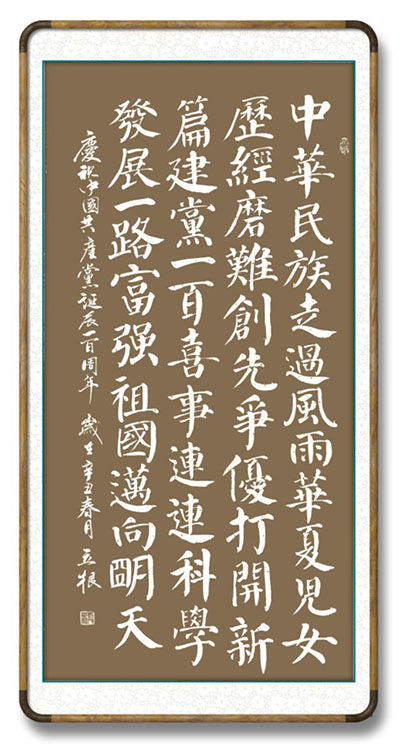 中華民族走過風雨華夏児女
歷經磨難創先爭優打開新
篇建黨一百喜事連連科學
發展一路富强祖國邁向朙天
慶祝中國共產黨誕辰一百周年 歲在辛丑春月 五根